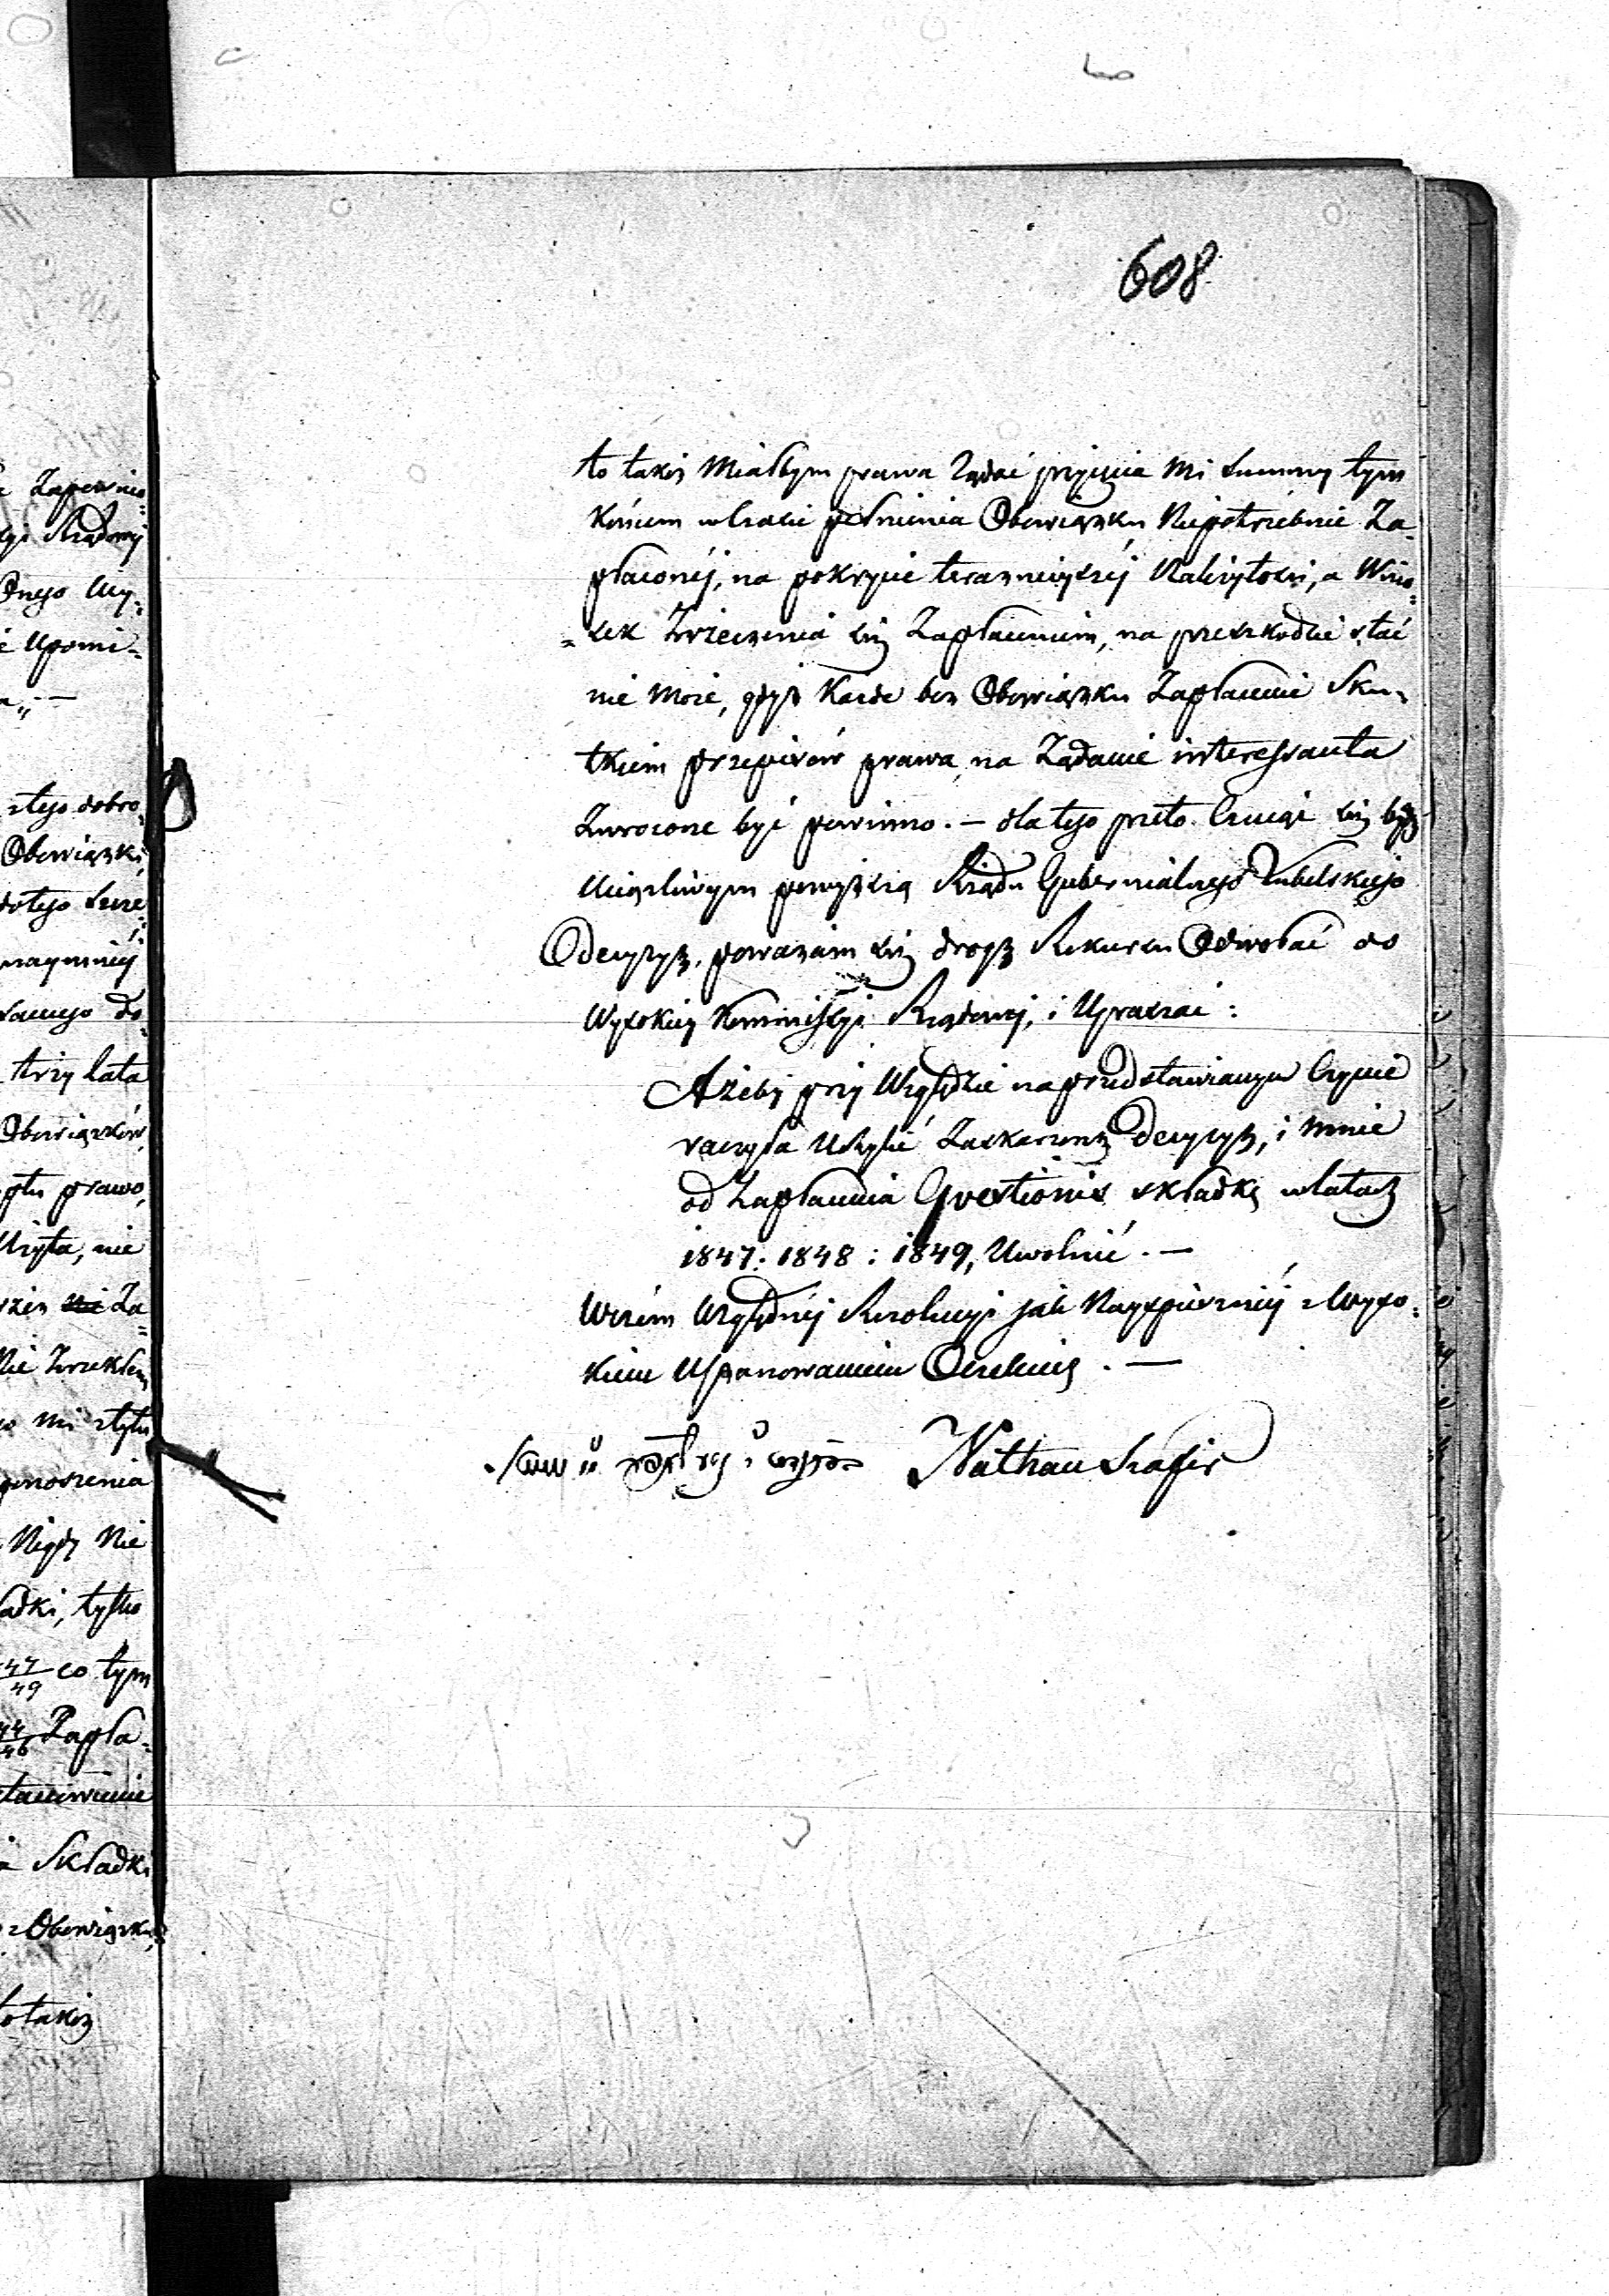 608
to takoż miałbym prawa żądać przyjęcia mi summy tym
końcem w czasie pełnienia Obowiązku Niepotrzebnie Za-
płaconéj, na pokrycie teraznieyszéj Należytości, a Wnio-
=sek Zrzeczenia się Zapłacenia, na przeszkodzie stać
nie może, gdyż Każde bez Obowiązku Zapłacenie Sku-
tkiem przepisów prawa, na Żądanie interessanta
Zwrocone być powinno. — dla tego przeto Czując się być
Uciążliwym powyższą Rządu Gubernialnego Lubelskiego
Decyzyą, poważam się drogą Rekursu Odwołać do
Wysokiey Kommissyi Rządowej, i Upraszać:
Ażeby przy Względzie na przedstawionym Czynie
raczyła Uchylić Zaskarzoną decyzyą, i mnie
od Zapłacenia Qvestionis składki w latach
1847: 1848: 1849, Uwolnić. —
Wczém Względnéj Rezolucyi jak Nayspieszniéj z Wyso-
kiem Uszanowaniem Oczekuję. —
Nathan Szafir
Zapewnie=
Rządowej
Onego Wy=
Upomi=
z tego dobro=
Obowiązki
do tego
naymniéj
samego do=
trzy lata
Obowiązków,
prawo,
Użyta, nie
nie Za=
Nie Zrzekłem
mi z tytu
ponoszenia
Nigdy Nie
składki, tylko
47/49 co tym
44/46 Zapła=
Składki
z Obowiązku
to takoż